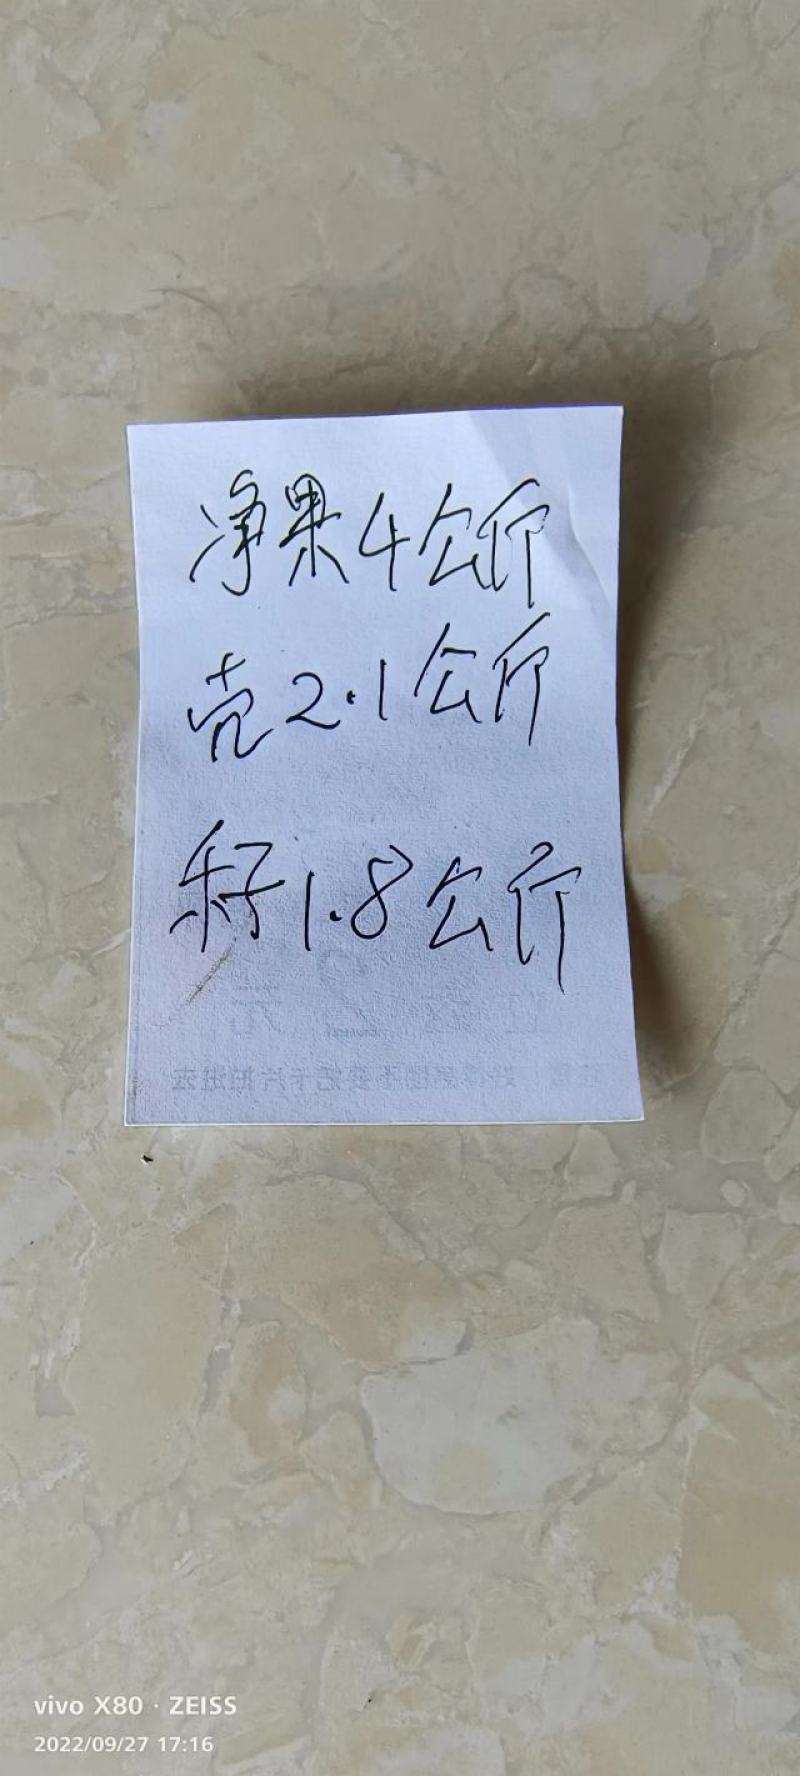 净果4公斤
壳2.1公斤
籽1.8公斤
vivo X80 · ZEISS
2022/09/27 17:16